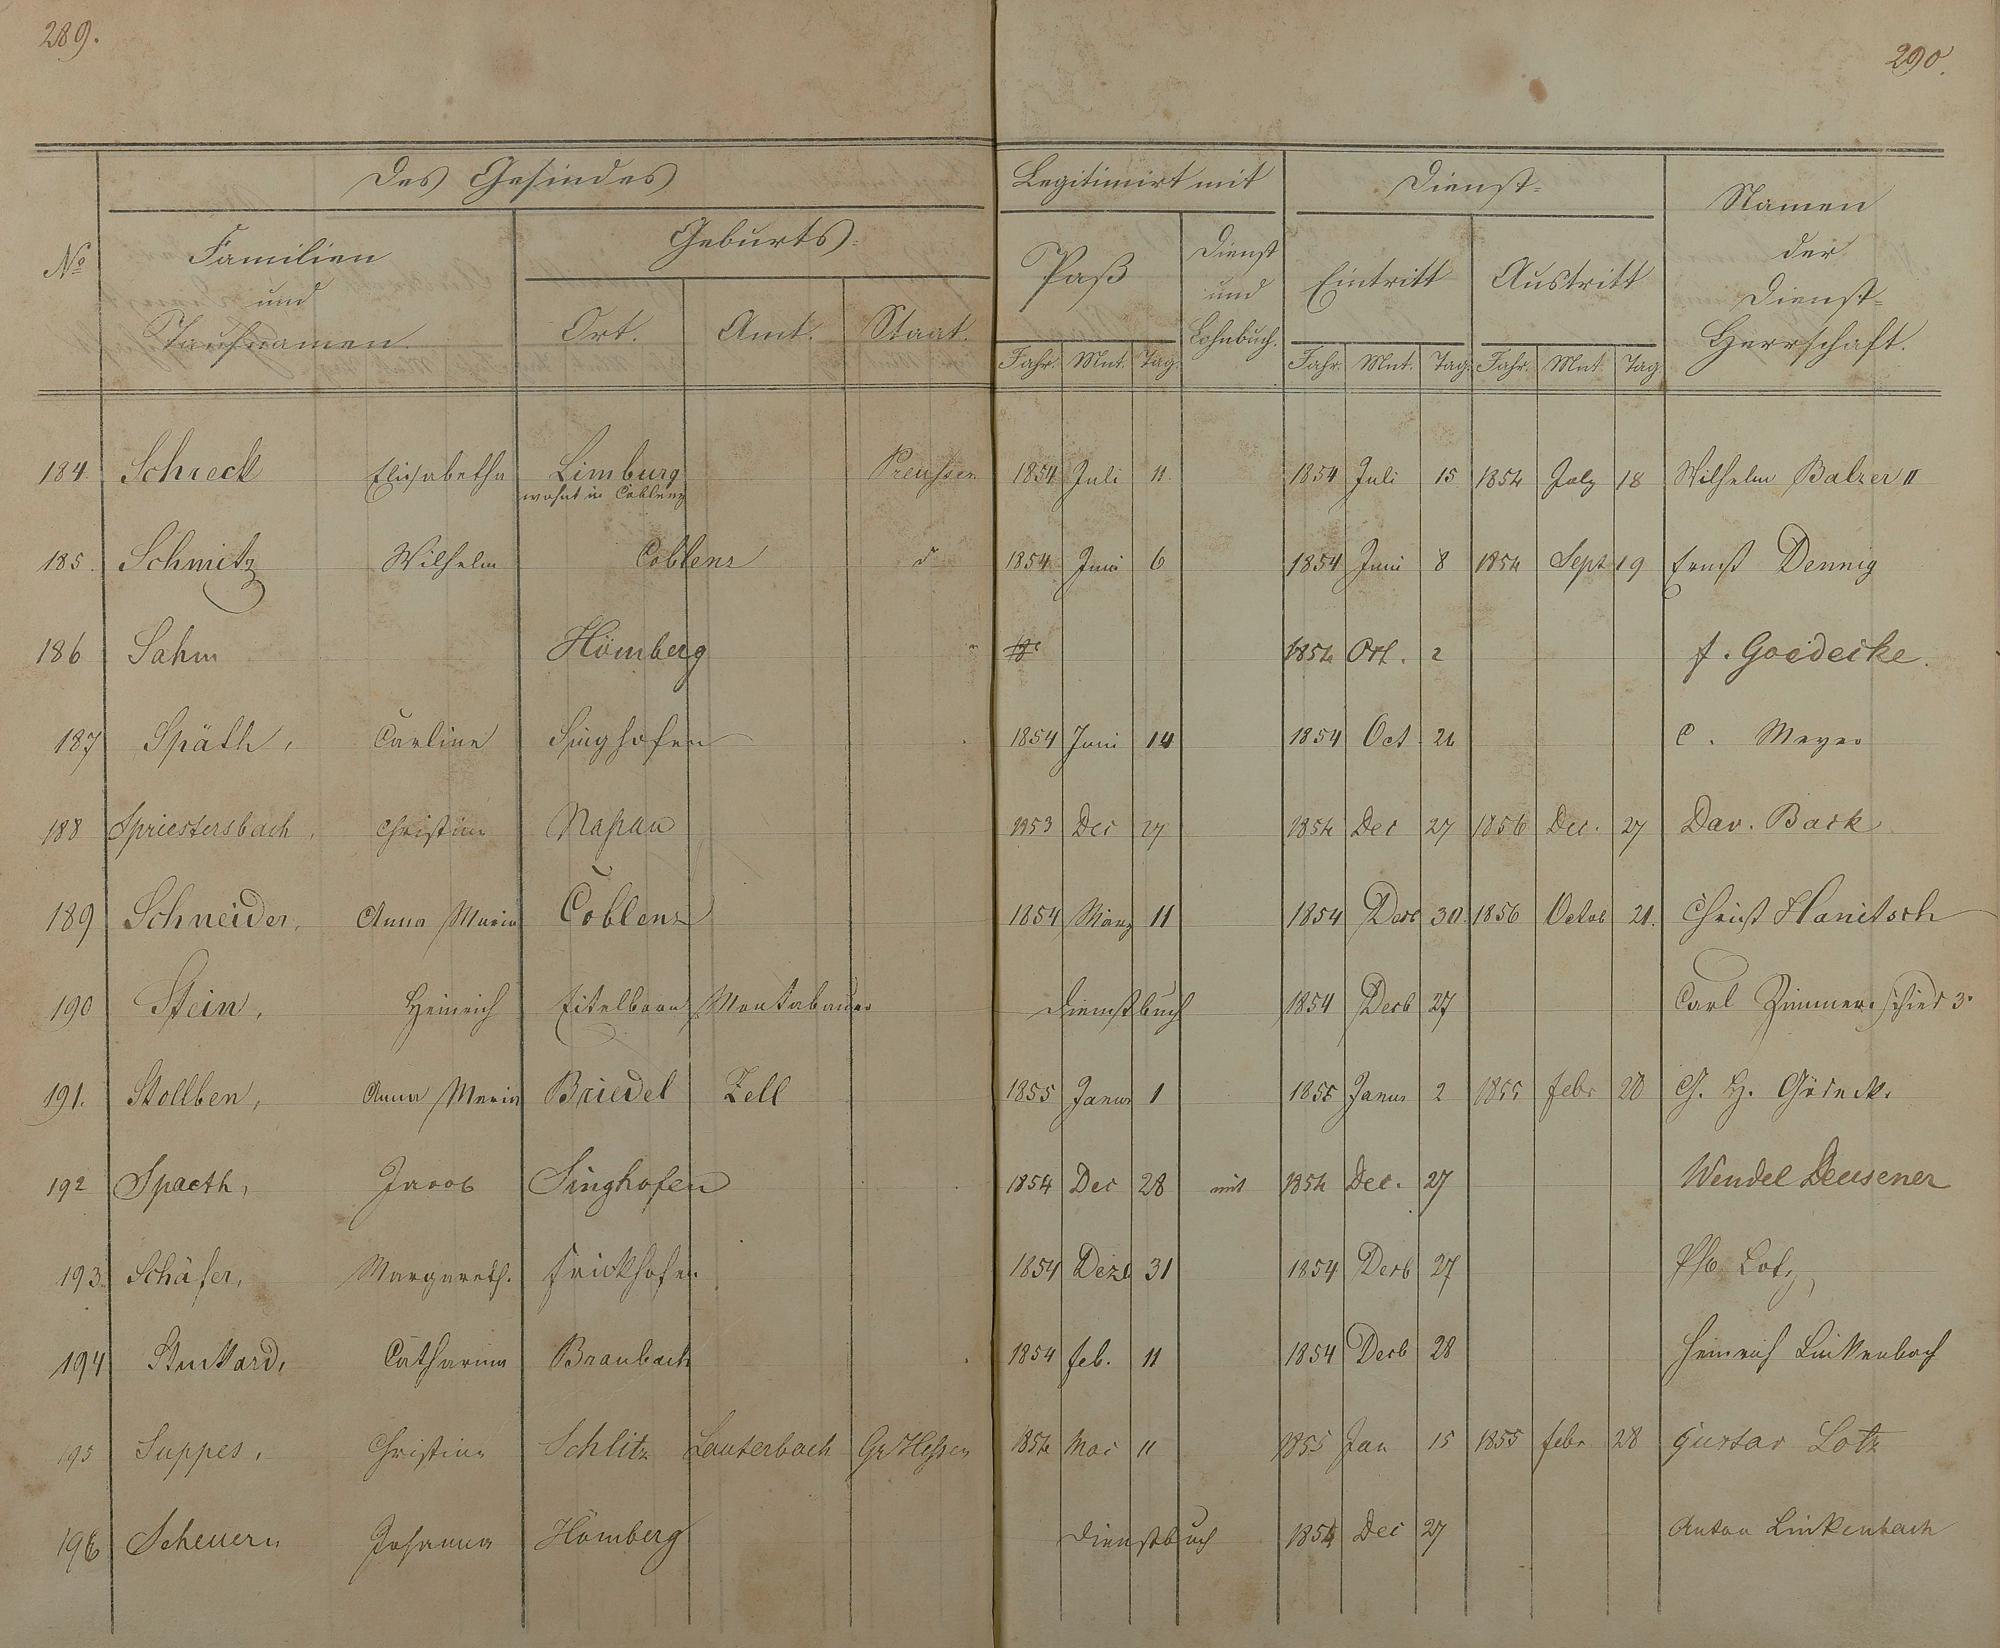 289.
290.
Des Gesindes
Legitimirt mit
Dienst-
Namen der Dienst-Herrschaft.
No
Familien und Taufnamen.
Geburts-
Paß
Dienst und Lohnbuch.
Eintritt
Austritt
Ort. Amt. Staat.
Jahr. Mnt. Tag. Jahr. Mnt. Tag. Jahr. Mnt. Tag
184. Schreck Elisabetha Limburg Preußen 1854 Juli 11. 1854 Juli 15 1854 July 18 Wilhelm Balzer II
wohnt in Coblenz
185. Schmitz Wilhelm Coblenz d 1854 Juni 6 1854 Juni 8 1854 Sept 19 Ernst Dennig
186 Sahm Hömberg 1854 Oct. 2 f. Goedecke.
187 Späth, Carline Singhofen 1854 Juni 14 1854 Oct. 26 C. Meyer
188 Spriestersbach, Christine Naßau 1853 Dec 27 1854 Dec 27 1856 Dec. 27 Dav. Back
189 Schneider, Anna Maria Coblenz 1854 März 11 1854 Decb 30. 1856 Octob 21. Christ Hanitsch
190 Stein, Heinrich Eitelborn Montabauer Dienstbuch 1854 Decb 27 Carl Zimmerschied 3.
191. Stollben, Anna Maria Briedel Zell 1855 Janur 1 1855 Janur 2 1855 febr 20 G. H.
192 Spaeth, Jacob Singhofen 1854 Dec 28 mit 1854 Dec. 27 Wendel Deusener
193. Schäfer, Margareth. Frickhofen 1854 Dezb 31 1854 Decb 27 Ph. Lotz
194 Catharina Braubach 1854 feb. 11 1854 Decb 28 Heinrich Linkenbach
195 Suppes, Christine Schlitz Lauterbach Gr Heßen 1854 11 1855 Jan 15 1855 febr 28 Gustav Lotz
196 Scheuern Johanna Hömberg Dienstbuch 1854 Dec 27 Anton Linkenbach